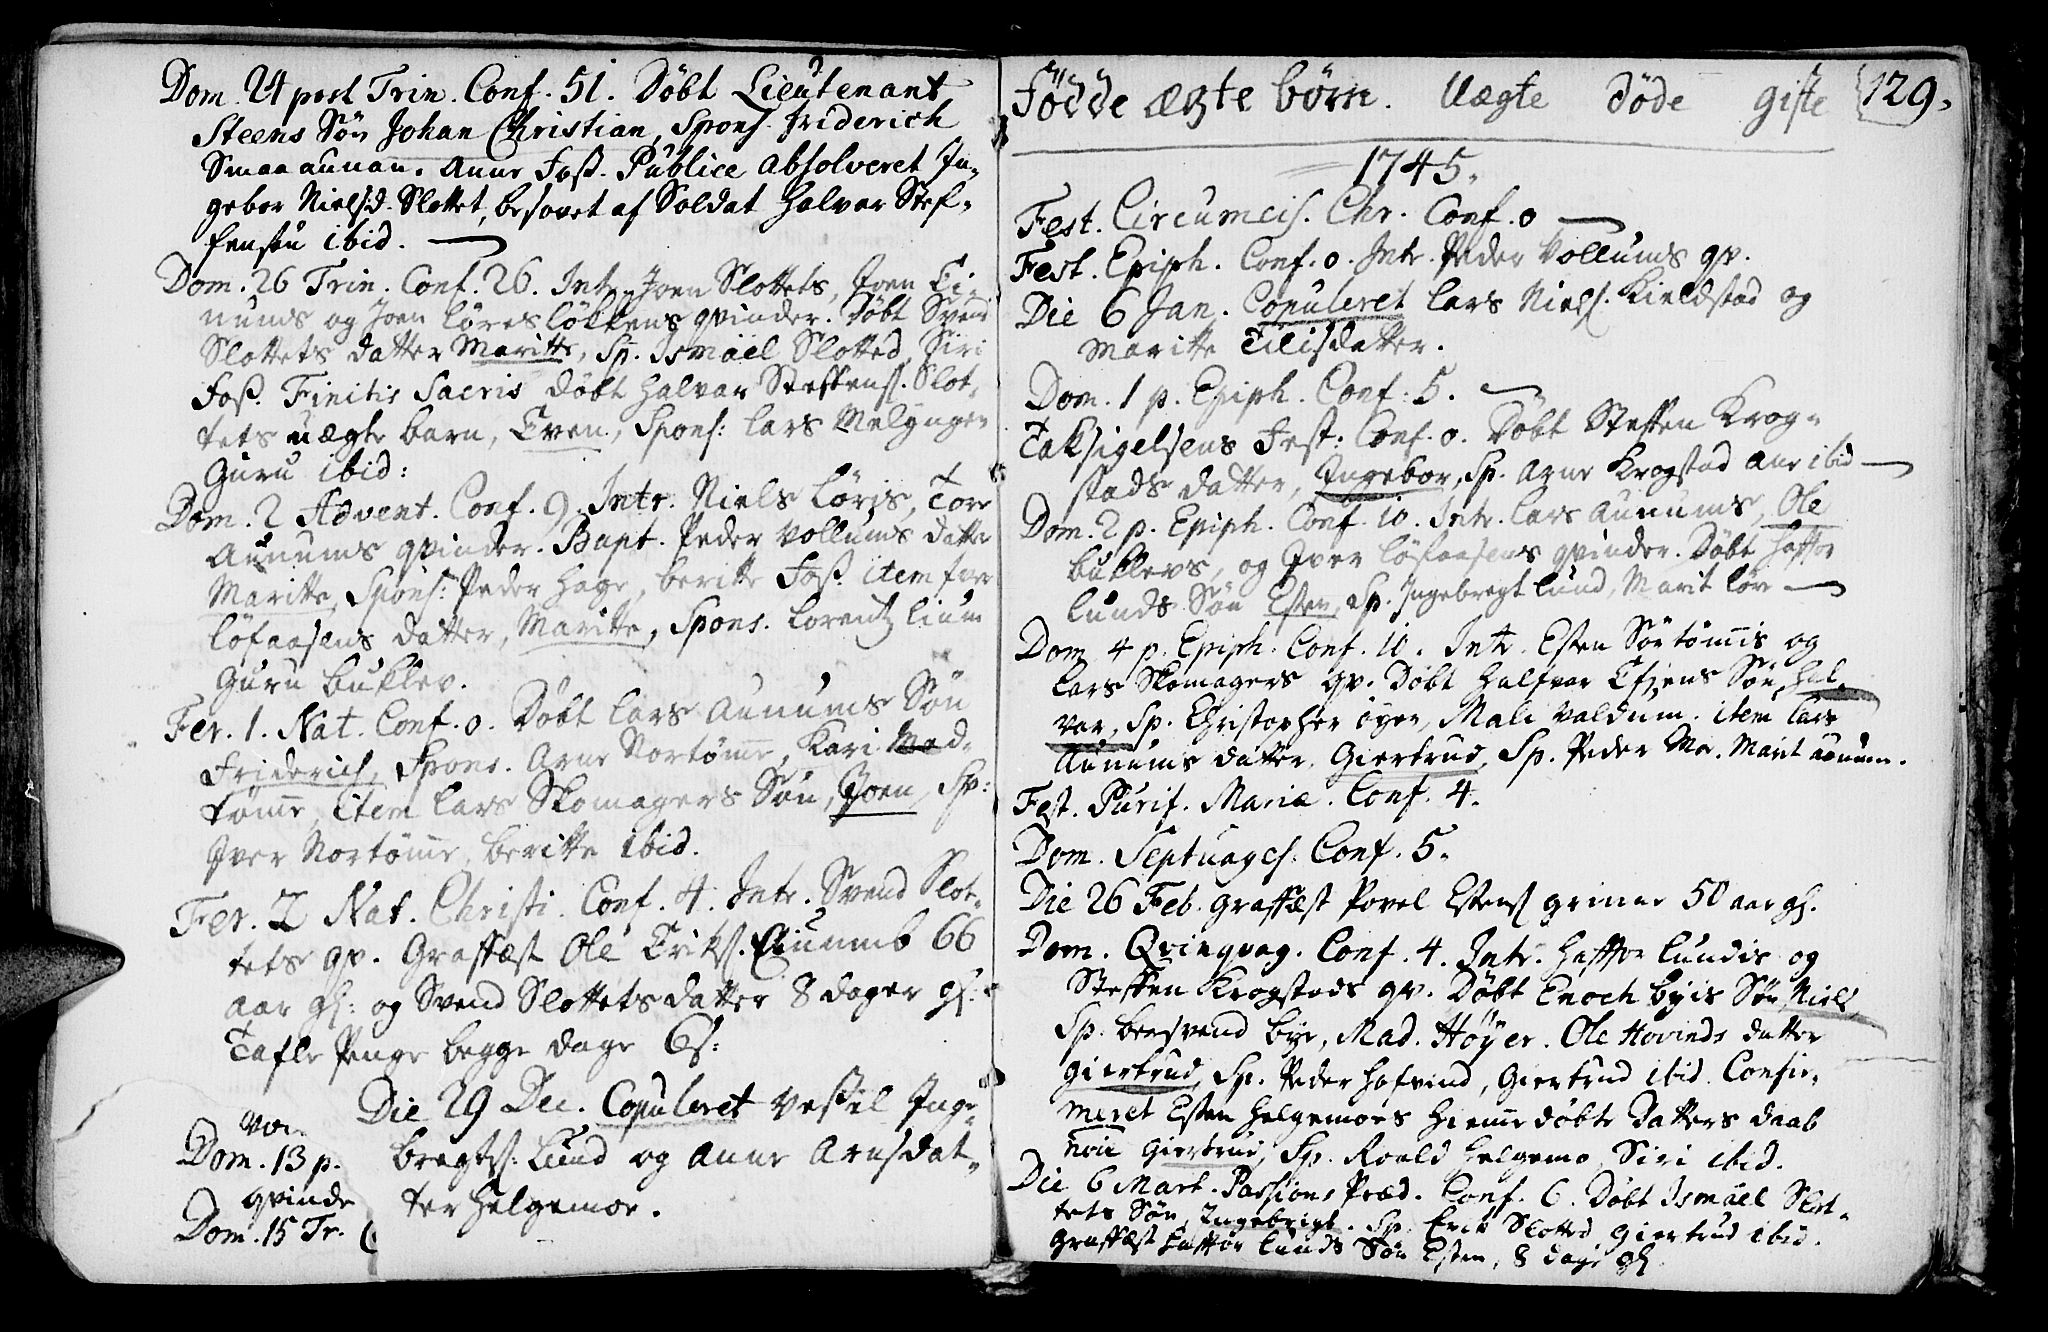 Dom. 24 post Trin. Conf. 51. Döbt Lieutenant
Steens Sön Johan Christian, Spons. Friderich
Smaaaunan. Anne Foss. Publice absolveret In-
gebor Nielsd. Slottet, besovet af Soldat Halvar Stef-
fensøn ibid.
Dom. 26 Trin. Conf. 26. Intr. Joen Slottets, Joen Ti-
nums og Joen Löresløkkens qvinder. Döbt Svend
Slottets datter Maritte, Sp. Ismael Slotted, Siri
Foss. Finitis Sacris döbt Halvar Steffens. Slot-
tets uægte barn, Even, Spons: Lars Melgugen
Guru ibid:
Dom. 2 Advent. Conf. 9. Intr. Niels Löris, Tore
Aunums qvinder. Bapt. Peder Vollums datter
Maritte, Spons: Peder Hage, Beritte Foss. item Iver
Löfaasens datter, Maritte, Spons. Lorentz Lium
Guru Buklev.
Fer. 1. Nat. Conf. 0. Döbt Lars Aunums Sön
Friderich, Spons. Arne Nortömme, Kari Mad-
tömme, item Lars Skomagers Sön, Joen, Sp:
Iver Nortömme, Beritte ibid.
Fer. 2 Nat. Christi. Conf. 4. Intr. Svend Slot-
tets qv. Graffæst Ole Eriks. 66
aar gl: og Svend Slottets datter 8 dager gl:
Tafle Penge begge dage 6 s:
Die 29 Dec. Copuleret Vessel Inge-
bregts: Lund og Anne Arnsdat-
ter Helgemoe.
Dom. 13 p.
qvinde
Dom. 15 Tr.
Födde ægte börn. Uægte döde gifte 129.
1745.
Fest. Circumcis. Chr. Conf. 0
Fest. Epiph. Conf. 0. Intr. Peder Vollums qv.
Die 6 Jan. Copuleret Lars Niels. Kieldstad og
Maritte Eilisdatter.
Dom. 1 p. Epiph. Conf. 5.
Taksigelsens Fest: Conf. 0. Döbt Steffen Krog-
stads datter, Ingebor, Sp. Arne Krogstad Ane ibid
Dom. 2 p. Epiph. Conf. 10. Intr. Lars Aunums, Ole
Buklevs, og Iver Löfaasens qvinder. Döbt Haffor
Lunds Sön Esten, Sp. Ingebregt Lund, Marit Löre
Dom 4 p. Epiph. Conf. 10. Intr. Esten Sörtömmis og
Lars Skomagers qv. Döbt Halfvar Sön, Hal-
var, Sp. Christopher Öyen, Mali Valdum. item Lars
Aunums datter, Giertrud, Sp. Peder Moe. Marit Aunum.
Fest. Purif. Mariæ. Conf. 4.
Dom. Septuages. Conf. 5.
Die 26 Feb. graffæst Povel Estens 50 aar gl.
Dom. Qvinqvag. Conf. 4. Intr. Haffor Lundis og
Steffen Krogstads qv. Döbt Enoch Byis Sön, Niels,
Sp. Bersvend Bye, Mad. Höyer. Ole Hovinds datter
Giertrud, Sp. Peder Hofvind, Giertrud ibid. Confir-
meret Esten Helgemoes hiemmedöbte datters daab
Giertrud, Sp. Roald Helgemo, Siri ibid.
Die 6 Mart. Passions Præd. Conf. 6. Döbt Ismael Slot-
tets Sön, Ingebrigt. Sp. Erik Slotted, Giertrud ibid.
Graffæst Haffor Lunds Sön Esten, 8 dage gl.